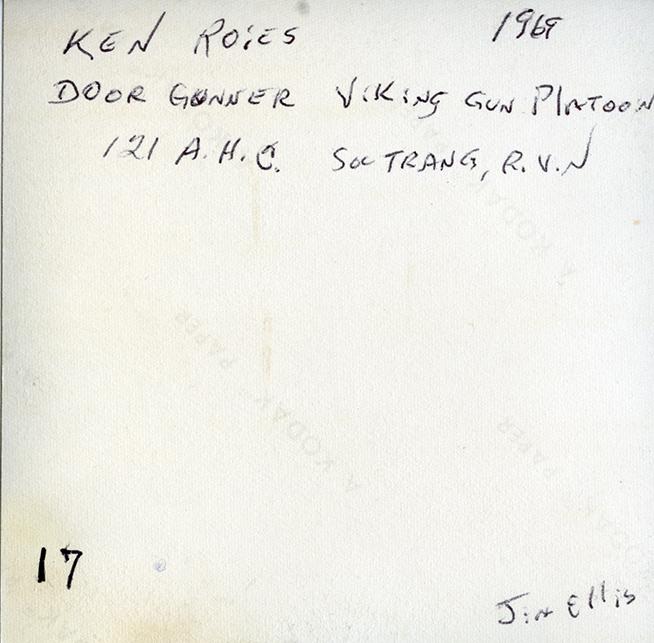 KEN ROIES 1969
DOOR GUNNER VIKING GUN PLATOON
121 A.H.C. SOC TRANG, R.V.N
A KODAK PAPER
A KODAK PAPER
PAPER
17
Jim Ellis